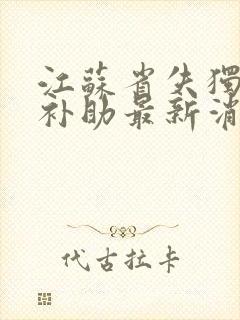 江蘇省失獨
补助最新消
代古拉卡